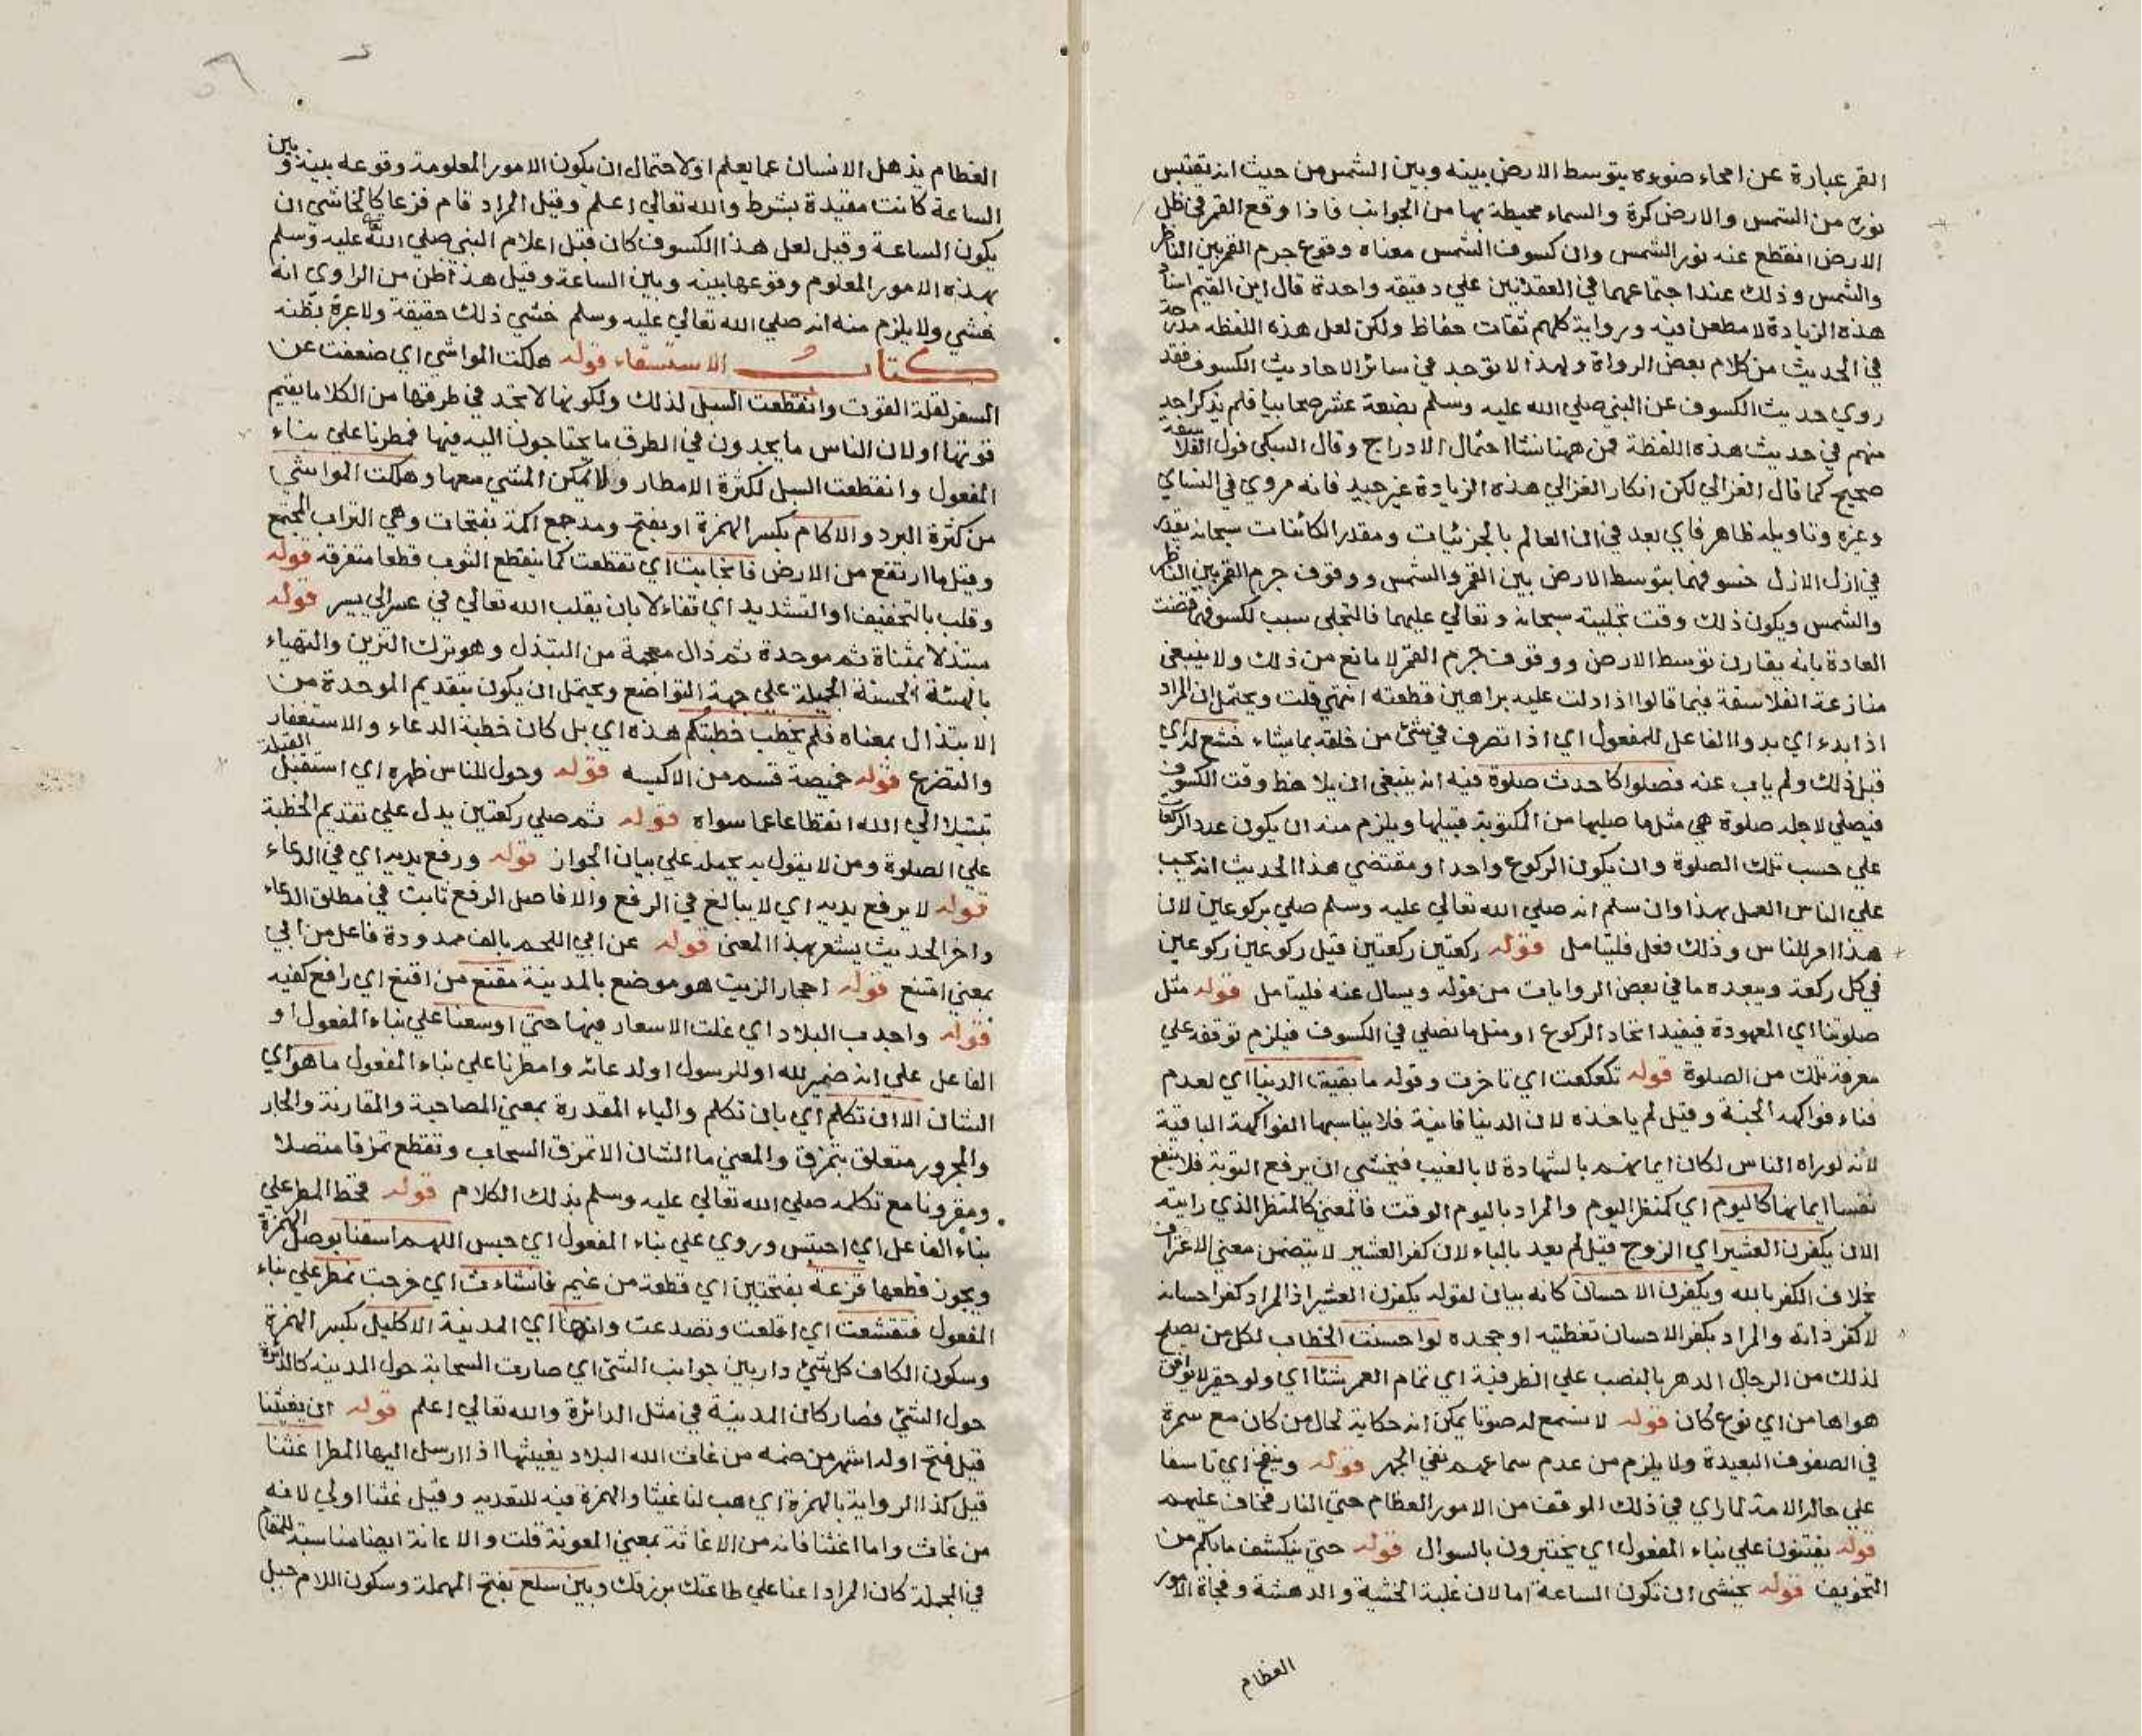 القمر عبارة عن امحاء ضوءه بتوسط الارض بينه وبين الشمس من حيث انه يقتبس
نوره من الشمس والارض كرة والسماء محيطة بها من الجوانب فاذا وقع القمر في ظل
الارض انقطع عنه نور الشمس وان كسوف الشمس معناه وقوع جرم القمر بين الناظر
والشمس وذلك عند اجتماعهما في العقدتين علي دقيقه واحدة قال ابن القيم اسناد
هذه الزيادة لا مطعن فيه ورواية كلهم ثقات حفاظ ولكن لعل هذه اللفظه مدرجة
في الحديث من كلام بعض الرواة ولهذا لا توجد في سائر الاحاديث الكسوف فقد
روي حديث الكسوف عن النبي صلي الله عليه وسلم بضعة عشر صحابيا فلم يذكر احد
منهم في حديث هذه اللفظة فمن ههنا نشا احتمال الادراج وقال السبكي قول الفلاسفة
صحيح كما قال الغزالي لكن انكار الغزالي هذه الزيادة غير جيد فانه مروي في النساي
وغيره وتاويله ظاهر فاي بعد في ان العالم بالجزئيات ومقدر الكائنات سبحانه يقدر
في ازل الازل خسوفهما بتوسط الارض بين القمر والشمس ووقوف جرم القمر بين الناظر
والشمس ويكون ذلك وقت تجليته سبحانه وتعالي عليهما فالتجلي سبب لكسوفهما قضت
العادة بانه يقارن توسط الارض ووقوف جرم القمر لا مانع من ذلك ولا ينبغي
منازعة الفلاسفة فيما قالوا اذا دلت عليه براهين قطعته انتهي قلت ويحتمل ان المراد
اذا بدء اي بدو الفاعل للمفعول اي اذا تصرف في شئ من خلقه بما يشاء خشع له اي
قبل ذلك ولم ياب عنه فصلوا كاحدث صلوة فيه انه ينبغي ان يلاحظ وقت الكسوف
فيصلي لاجله صلوة هي مثل ما صليها من المكتوبة قبيلها ويلزم منه ان يكون عدد الركعات
علي حسب تلك الصلوة وان يكون الركوع واحدا ومقتضي هذا الحديث انه يجب
علي الناس العمل بهذا وان سلم انه صلي الله تعالي عليه وسلم صلي بركوعين لان
هذا امر للناس وذلك فعل فليتامل قوله ركعتين ركعتين قيل ركوعين ركوعين
في كل ركعة ويبعده ما في بعض الروايات من قوله ويسال عنه فليتامل قوله مثل
صلوتنا اي المعهودة فيفيد اتحاد الركوع او مثل ما نصلي في الكسوف فيلزم توقفه علي
معرفة تلك من الصلوة قوله تكعكعت اي تاخرت وقوله ما بقيت الدنيا اي لعدم
فناء فواكهه الجنة وقيل لم ياخذه لان الدنيا فانية فلا يناسبها الفواكهة الباقية
لانه لو راه الناس لكان ايمانهم بالشهادة لا بالغيب فيخشي ان يرفع التوبة فلا ينفع
نفسا ايمانها كاليوم اي كمنظر اليوم والمراد باليوم الوقت فالمعني كالمنظر الذي رايته
الان يكفرن العشير اي الزوج قيل لم يعد بالباء لان كفر العشير لا يتضمن معني الاعتراف
بخلاف الكفر بالله ويكفرن الاحسان كانه بيان لقوله يكفرن العشير اذ المراد كفر احسانه
لا كفر ذاته والمراد بكفر الاحسان تغطيته او جحده لو احسنت الخطاب لكل من يصلح
لذلك من الرجال الدهر بالنصب علي الظرفية اي تمام العمر شئا اي ولو حقير لا يوافق
هواها من اي نوع كان قوله لا نسمع له صوتا يمكن انه حكاية لحال من كان مع سمرة
في الصفوف البعيدة ولا يلزم من عدم سماعهم نفي الجهر قوله وينفخ اي تاسفا
علي حال الامة لما راي في ذلك الموقف من الامور العظام حتي النار فخاف عليهم
قوله يفتنون علي بناء المفعول اي يختبرون بالسوال قوله حتي ينكشف ما بكم من
التخويف قوله يخشي ان تكون الساعة اما لان غلبة الخشية والدهشة وفجاة الامور
العظام
العظام يذهل الانسان عما يعلم او لاحتمال ان يكون الامور المعلومة وقوعه بينه وبين
الساعة كانت مقيدة بشرط والله تعالي اعلم وقيل المراد قام فزعا كالخاشي ان
يكون الساعة وقيل لعل هذا الكسوف كان قبل اعلام النبي صلي الله عليه وسلم
بهذه الامور المعلوم وقوعها بينه وبين الساعة وقيل هذا ظن من الراوي انه
خشي ولا يلزم منه انه صلي الله تعالي عليه وسلم خشي ذلك حقيقة ولا عبرة بظنه
كتاب الاستسقاء قوله هلكت المواشي اي ضعفت عن
السفر لقلة القوت وانقطعت السبل لذلك ولكونها لا تجد في طرقها من الكلا ما يقيم
قوتها او لان الناس ما يجدون في الطرق ما يحتاجون اليه فيها فمطرنا علي بناء
المفعول وانقطعت السبل لكثرة الامطار ولا يمكن المشي معها وهلكت المواشي
من كثرة البرد والاكام بكسر الهمزة او بفتح ومد جمع اكمة بفتحات وهي التراب المجتمع
وقيل ما ارتفع من الارض فانجابت اي تقطعت كما ينقطع الثوب قطعا متفرقه قوله
وقلب بالتخفيف او التشديد اي تفاءلا بان يقلب الله تعالي في عسر الي يسر قوله
متبذلا بمثناة ثم موحدة ثم ذال معجمة من التبذل وهو ترك التزين والتهياء
بالهيئة الحسنة الجميلة علي جهة التواضع ويحتمل ان يكون بتقديم الموحدة من
الابتذال بمعناه فلم يخطب خطبتكم هذه اي بل كان خطبة الدعاء والاستغفار
والتضرع قوله خميصة قسم من الاكيسه قوله وحول للناس ظهره اي استقبل القبلة
تبتلا الي الله انقطاعا عما سواه قوله ثم صلي ركعتين يدل علي تقديم الخطبة
علي الصلوة ومن لا يقول به يحمله علي بيان الجواز قوله ورفع يديه اي في الدعاء
قوله لا يرفع يديه اي لا يبالغ في الرفع والا فاصل الرفع ثابت في مطلق الدعاء
واخر الحديث يشعر بهذا المعني قوله عن ابي اللحم بالف ممدودة فاعل من ابي
بمعني امتنع قوله احجار الزيت هو موضع بالمدينة مقنع من اقنع اي رافع كفيه
قوله واجدب البلاد اي غلت الاسعار فيها حتي اوسعنا علي بناء المفعول او
الفاعل علي انه ضمير لله او للرسول او لدعائه وامطرنا علي بناء المفعول ما هو اي
الشان الا ان تكلم اي بان تكلم والباء المقدرة بمعني المصاحبة والمقارنة والجار
والمجرور متعلق بتمزق والمعني ما الشان الا تمزق السحاب وتقطع تمزقا متصلا
ومقرونا مع تكلمه صلي الله تعالي عليه وسلم بذلك الكلام قوله قحط المطر علي
بناء الفاعل اي احتبس وروي علي بناء المفعول اي حبس اللهم اسقنا بوصل الهمزة
ويجوز قطعها قزعة بفتحتين اي قطعة من غيم فانشاءت اي خرجت تمطر علي بناء
المفعول فتقشعت اي اقلعت وتصدعت وانها اي المدينة الاكليل بكسر الهمزة
وسكون الكاف كل شئ دار بين جوانب الشئ اي صارت السحابة حول المدينه كالدائرة
حول الشئ فصار كان المدينة في مثل الدائرة والله تعالي اعلم قوله ان يغيثنا
قيل فتح اوله اشهر من ضمه من غاث الله البلاد يغيثها اذا ارسل اليها المطر اغثنا
قيل كذا الرواية بالهمزة اي هب لنا غيثا والهمزة فيه للتعديه وقيل غثنا اولي لانه
من غاث واما اغثنا فانه من الاغاثة بمعني المعونة قلت والاعانة ايضا مناسبة للمقام
في الجملة كان المراد اعنا علي طاعتك برزقك وبين سلع بفتح المهملة وسكون اللام جبل